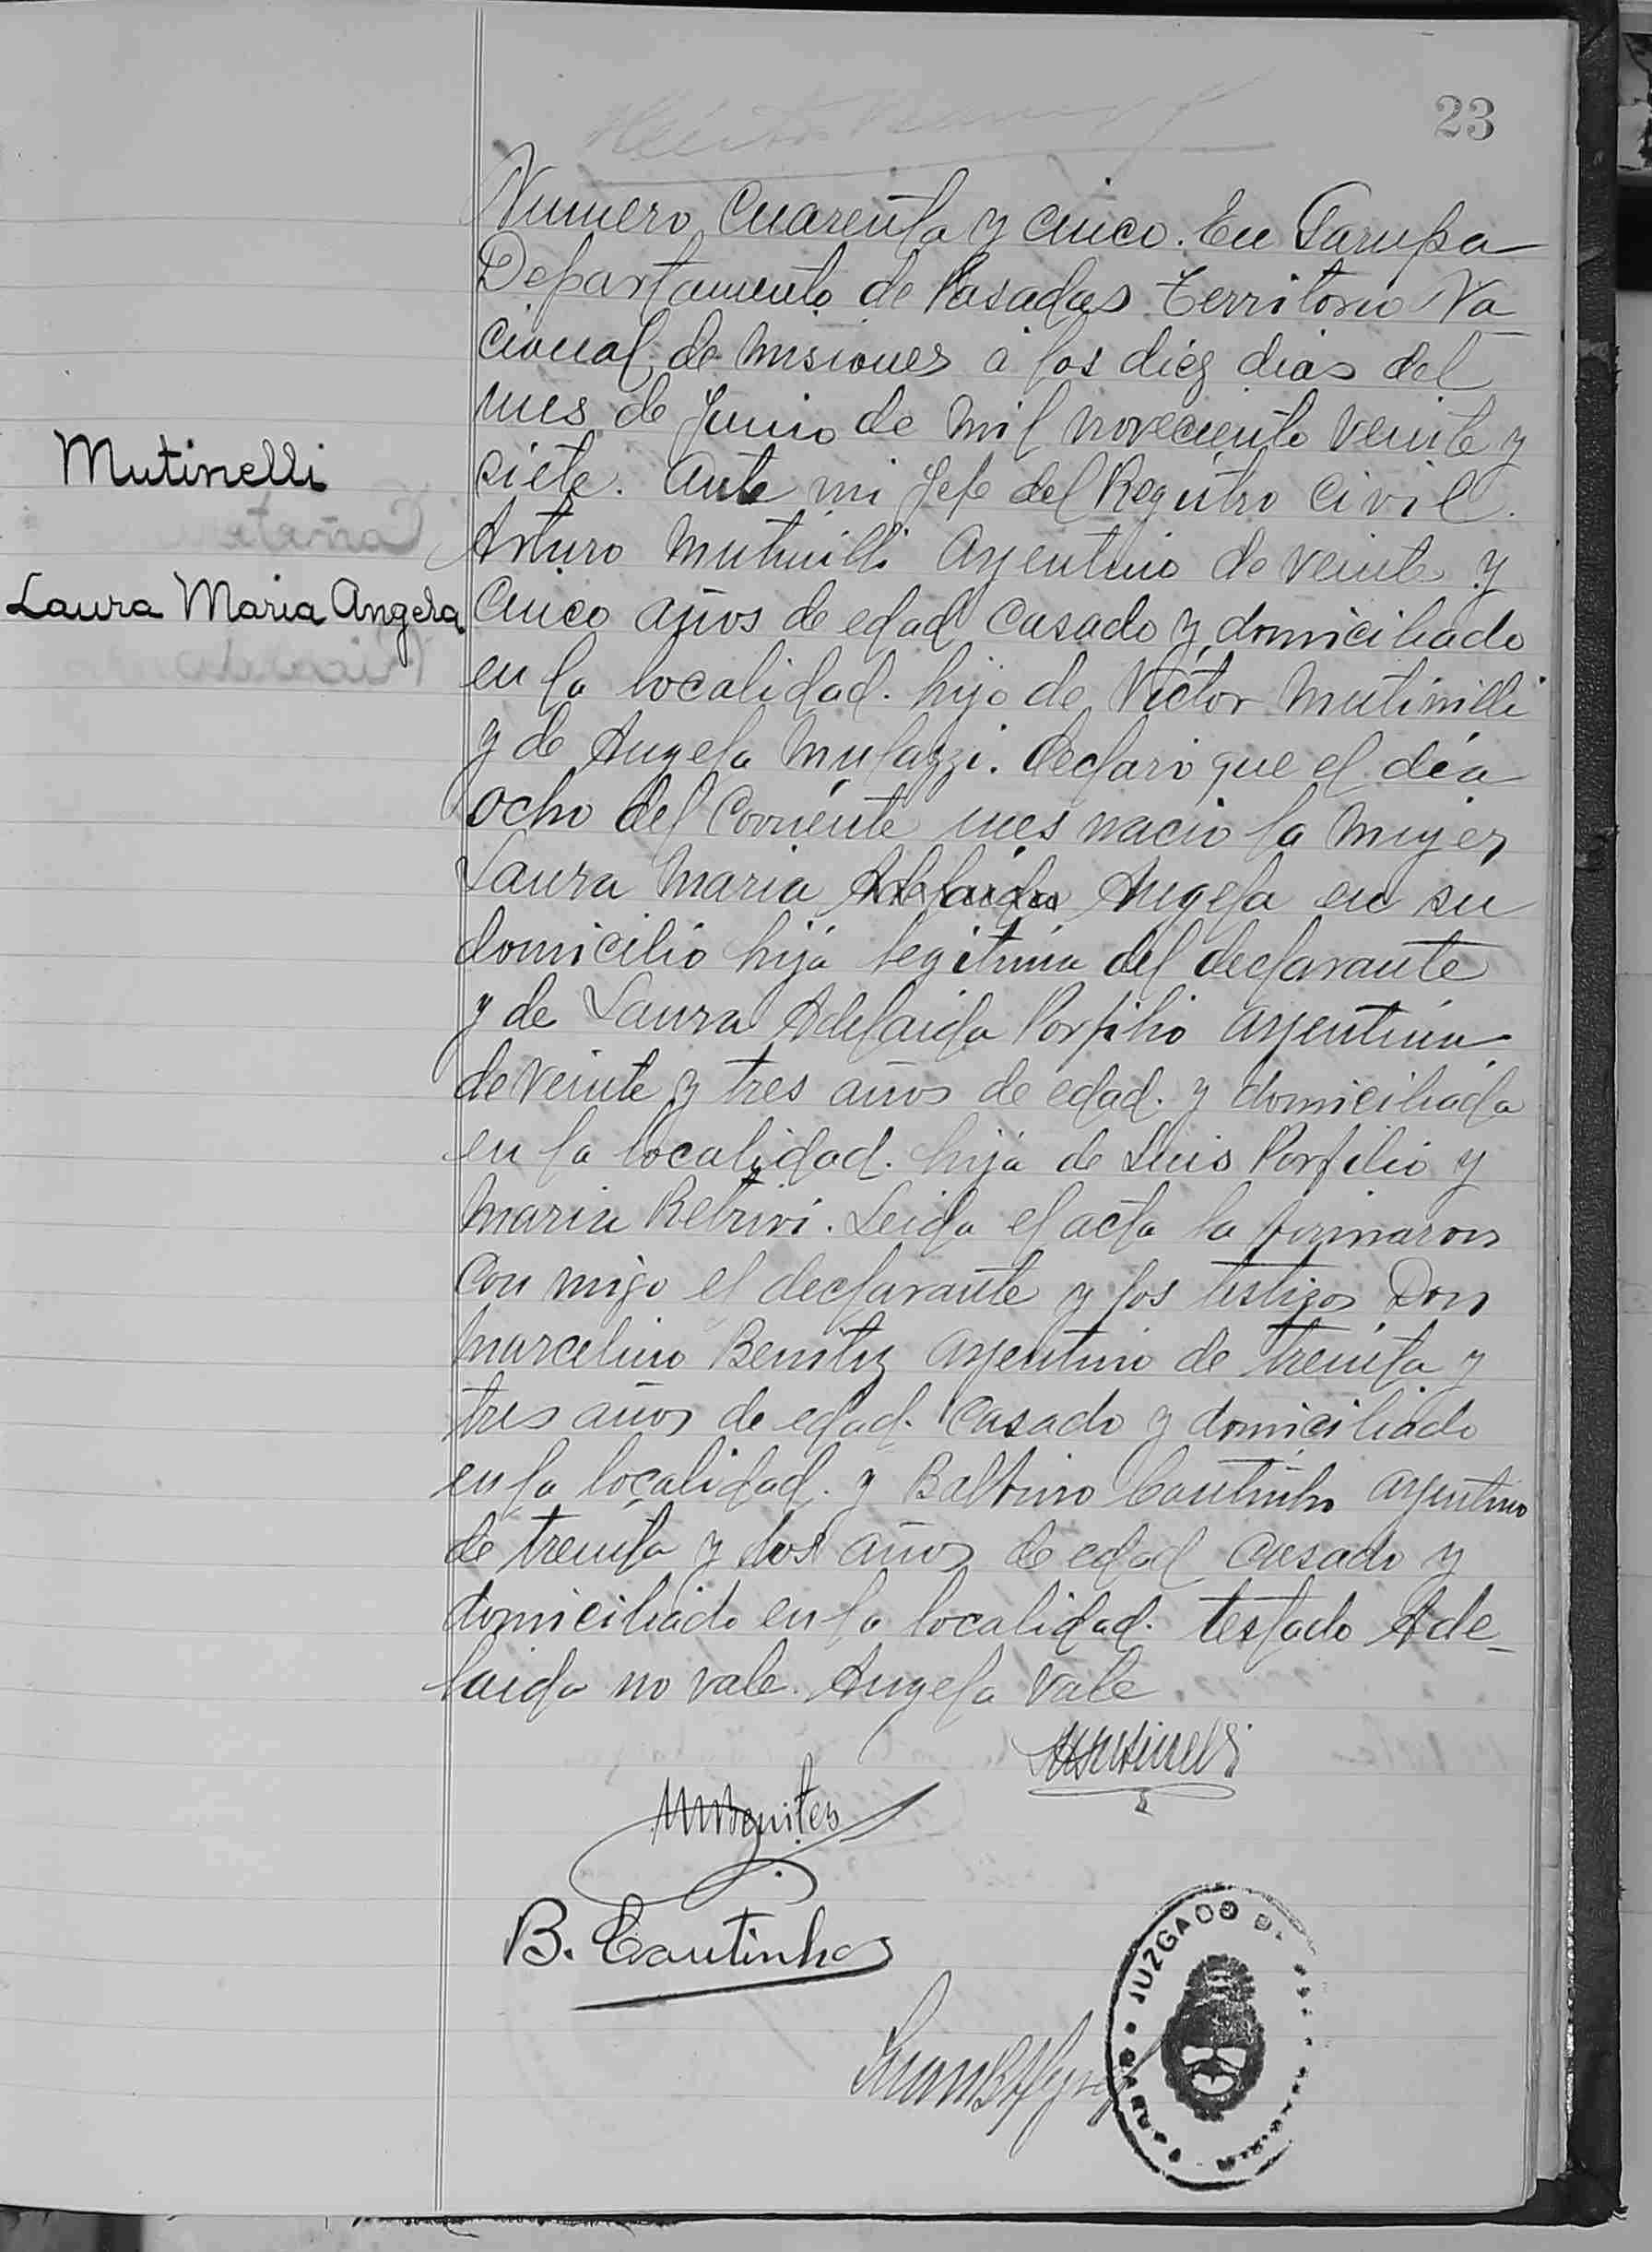 23
Numero Cuarenta y cinco. En Garupa
Departamento de Posadas Territorio Na
cional de Misiones a los diez dias del
mes de Junio de mil noveciento veinte y
siete. Ante mi Jefe del Registro Civil.
Mutinelli
Arturo Mutinilli Argentino de veinte y
Laura Maria Angela
cinco años de edad casado y domiciliado
en la localidad. hijo de Victor Mutinilli
y de Angela Mulazzi. Declaro que el dia
ocho del Corriente mes nacio la mujer
Laura Maria Adelaida Angela en su
domicilio hija legitima del declarante
y de Laura Adelaida Porfilio argentina
de veinte y tres años de edad. y domiciliada
en la localidad. hija de Luis Porfilio y
Maria Retrivi. Leida el acta la firmaron
con migo el declarante y los testigos Don
Marcelino Benitez argentino de treinta y
tres años de edad. Casado y domiciliado
en la localidad. y Balbino Coutinho argentino
de treinta y dos años de edad casado y
domiciliado en la localidad. testado Ade-
laida no vale. Angela vale
AMutinelli
MBenites
B. Coutinho
JUZGADO D